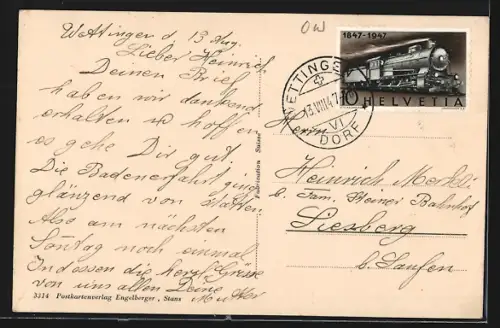 Wettingen d. 13 Aug.
Lieber Heinrich
Deinen Brief
haben wir dankend
erhalten u. hoffen
es gehe Dir gut.
Die Badenerfahrt ging
glänzend von statten.
Also am nächsten
Sonntag noch einmal
Indessen die herzl. Grüsse
von uns allen Deine Mutter
3314 Postkartenverlag Engelberger, Stans
OW
1847-1947
10
HELVETIA
WETTINGEN
13.VIII.47
VI
DORF
Herrn
Heinrich Merkli
b. Fam. Bahnhof
Liesberg
b. Laufen